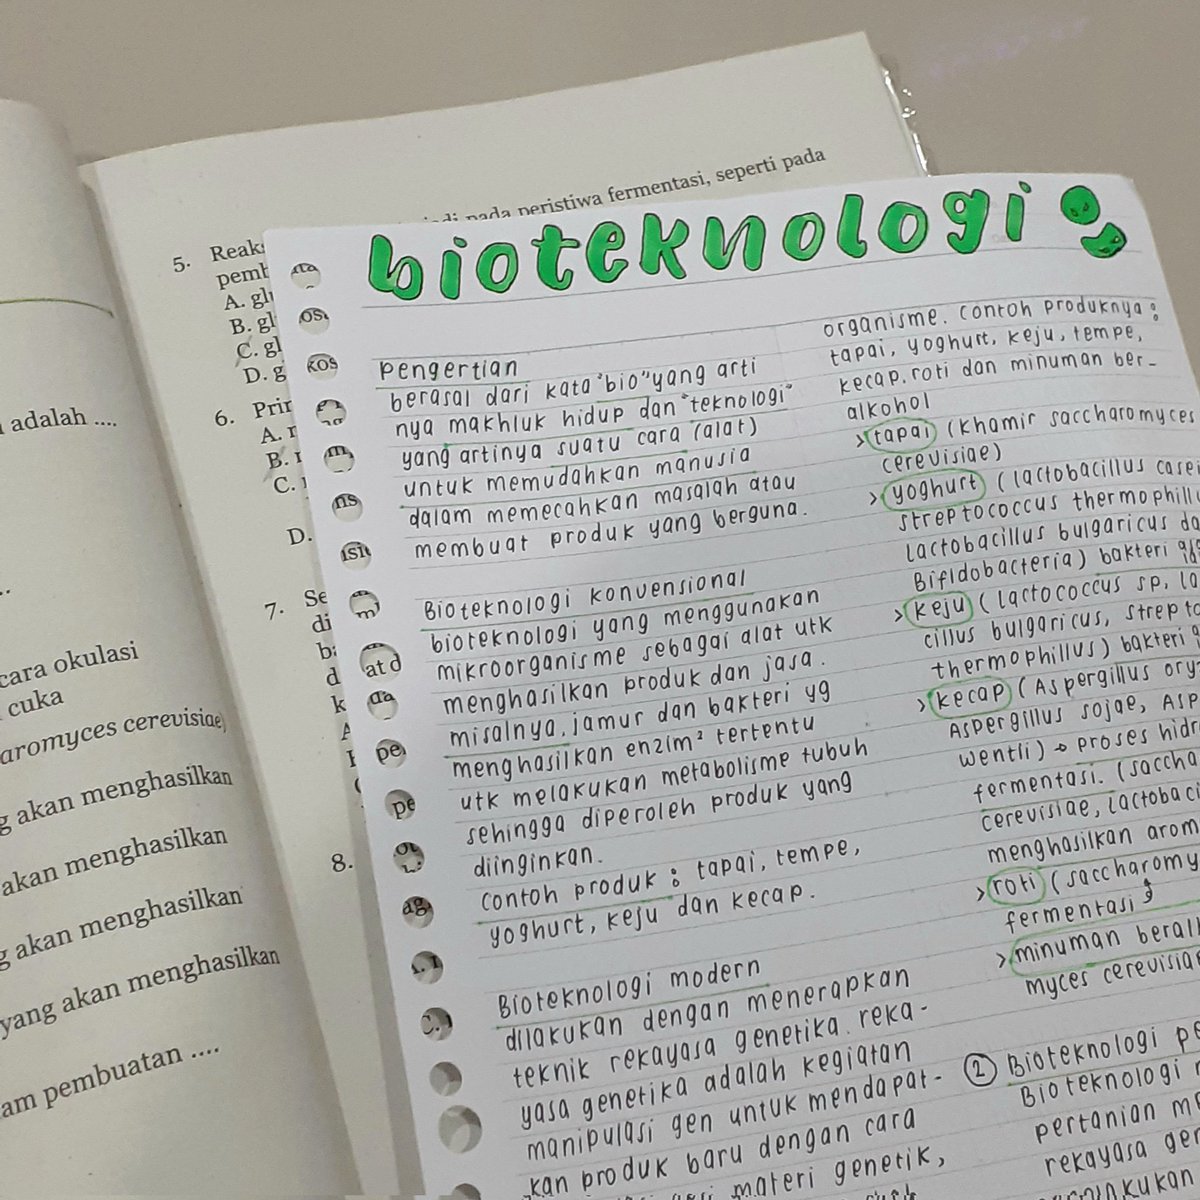 adalah ....
cara okulasi
cuka
aromyces cerevisiae)
g akan menghasilkan
akan menghasilkan
g akan menghasilkan
yang akan menghasilkan
am pembuatan ....
pada peristiwa fermentasi, seperti pada
5. Reak
pemb
A. gl
B. gl
C. gl
D. g
6. Prin
A.
B.
C.
D.
7. Se
di
8.
bioteknologi
pengertian
berasal dari kata "bio" yang arti
nya makhluk hidup dan "teknologi"
yang artinya suatu cara (alat)
untuk memudahkan manusia
dalam memecahkan masalah atau
membuat produk yang berguna.
Bioteknologi konvensional
bioteknologi yang menggunakan
mikroorganisme sebagai alat utk
menghasilkan produk dan jasa.
misalnya, jamur dan bakteri yg
menghasilkan enzim² tertentu
utk melakukan metabolisme tubuh
sehingga diperoleh produk yang
diinginkan.
contoh produk : tapai, tempe,
yoghurt, keju dan kecap.
Bioteknologi modern
dilakukan dengan menerapkan
teknik rekayasa genetika. reka-
yasa genetika adalah kegiatan
manipulasi gen untuk mendapat-
kan produk baru dengan cara
materi genetik,
organisme. contoh produknya :
tapai, yoghurt, keju, tempe,
kecap. roti dan minuman ber-
alkohol
> tapai (khamir saccharomyces
cerevisiae)
> yoghurt (lactobacillus casei
streptococcus thermophillu
lactobacillus bulgaricus da
Bifidobacteria) bakteri
> keju (lactococcus sp, la
cillus bulgaricus, strepto
thermophillus) bakteri
> kecap (Aspergillus ory
Aspergillus sojae, Asp
wentii) → proses hidr
fermentasi. (saccha
cerevisiae, lactobaci
menghasilkan arom
> roti (saccharomy
fermentasi
> minuman beral
myces cerevisia
② Bioteknologi pe
Bioteknologi
pertanian me
rekayasa gen